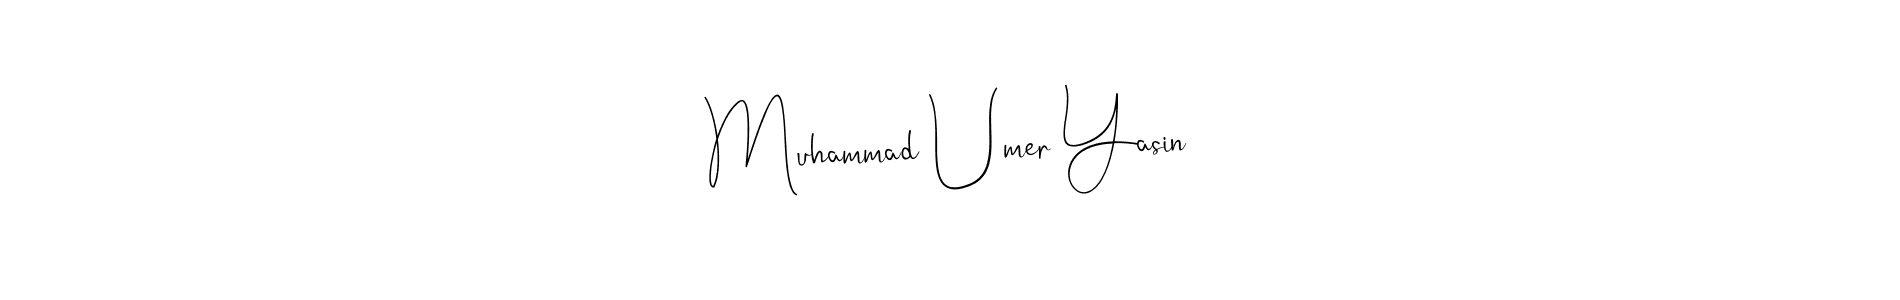 Muhammad Umer Yasin